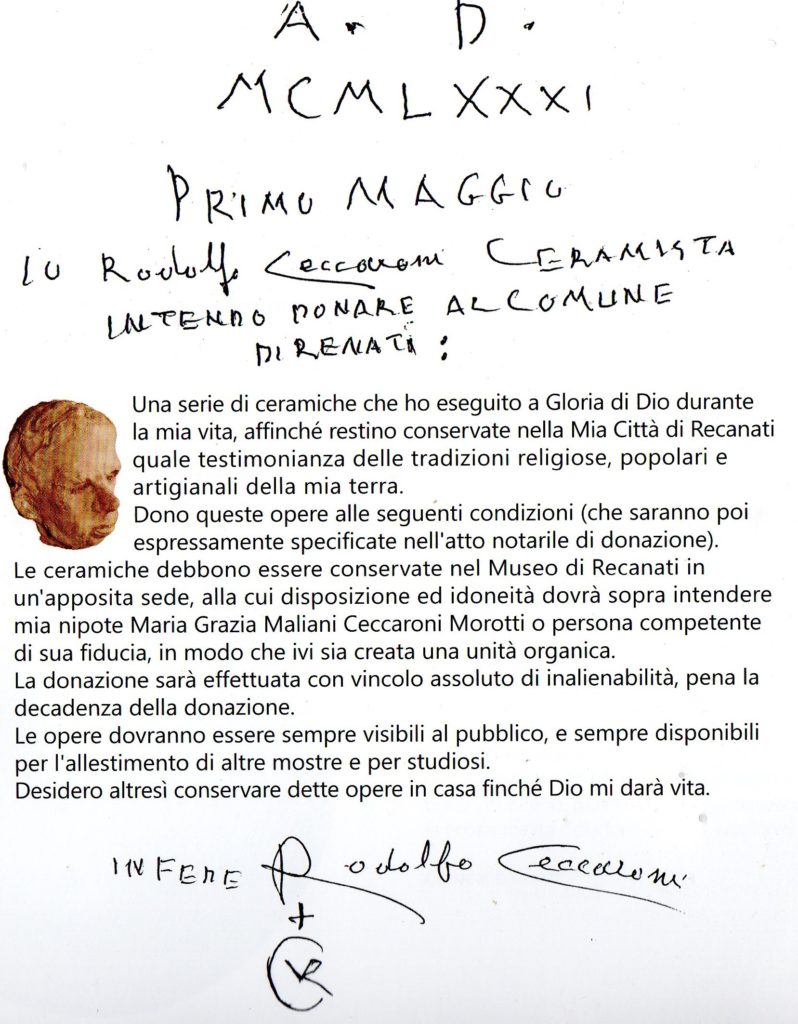 A. D.
MCMLXXXI
PRIMO MAGGIO
IO Rodolfo Ceccaroni CERAMISTA
INTENDO DONARE AL COMUNE
DI RENATI :
Una serie di ceramiche che ho eseguito a Gloria di Dio durante
la mia vita, affinché restino conservate nella Mia Città di Recanati
quale testimonianza delle tradizioni religiose, popolari e
artigianali della mia terra.
Dono queste opere alle seguenti condizioni (che saranno poi
espressamente specificate nell'atto notarile di donazione).
Le ceramiche debbono essere conservate nel Museo di Recanati in
un'apposita sede, alla cui disposizione ed idoneità dovrà sopra intendere
mia nipote Maria Grazia Maliani Ceccaroni Morotti o persona competente
di sua fiducia, in modo che ivi sia creata una unità organica.
La donazione sarà effettuata con vincolo assoluto di inalienabilità, pena la
decadenza della donazione.
Le opere dovranno essere sempre visibili al pubblico, e sempre disponibili
per l'allestimento di altre mostre e per studiosi.
Desidero altresì conservare dette opere in casa finché Dio mi darà vita.
IN FEDE Rodolfo Ceccaroni